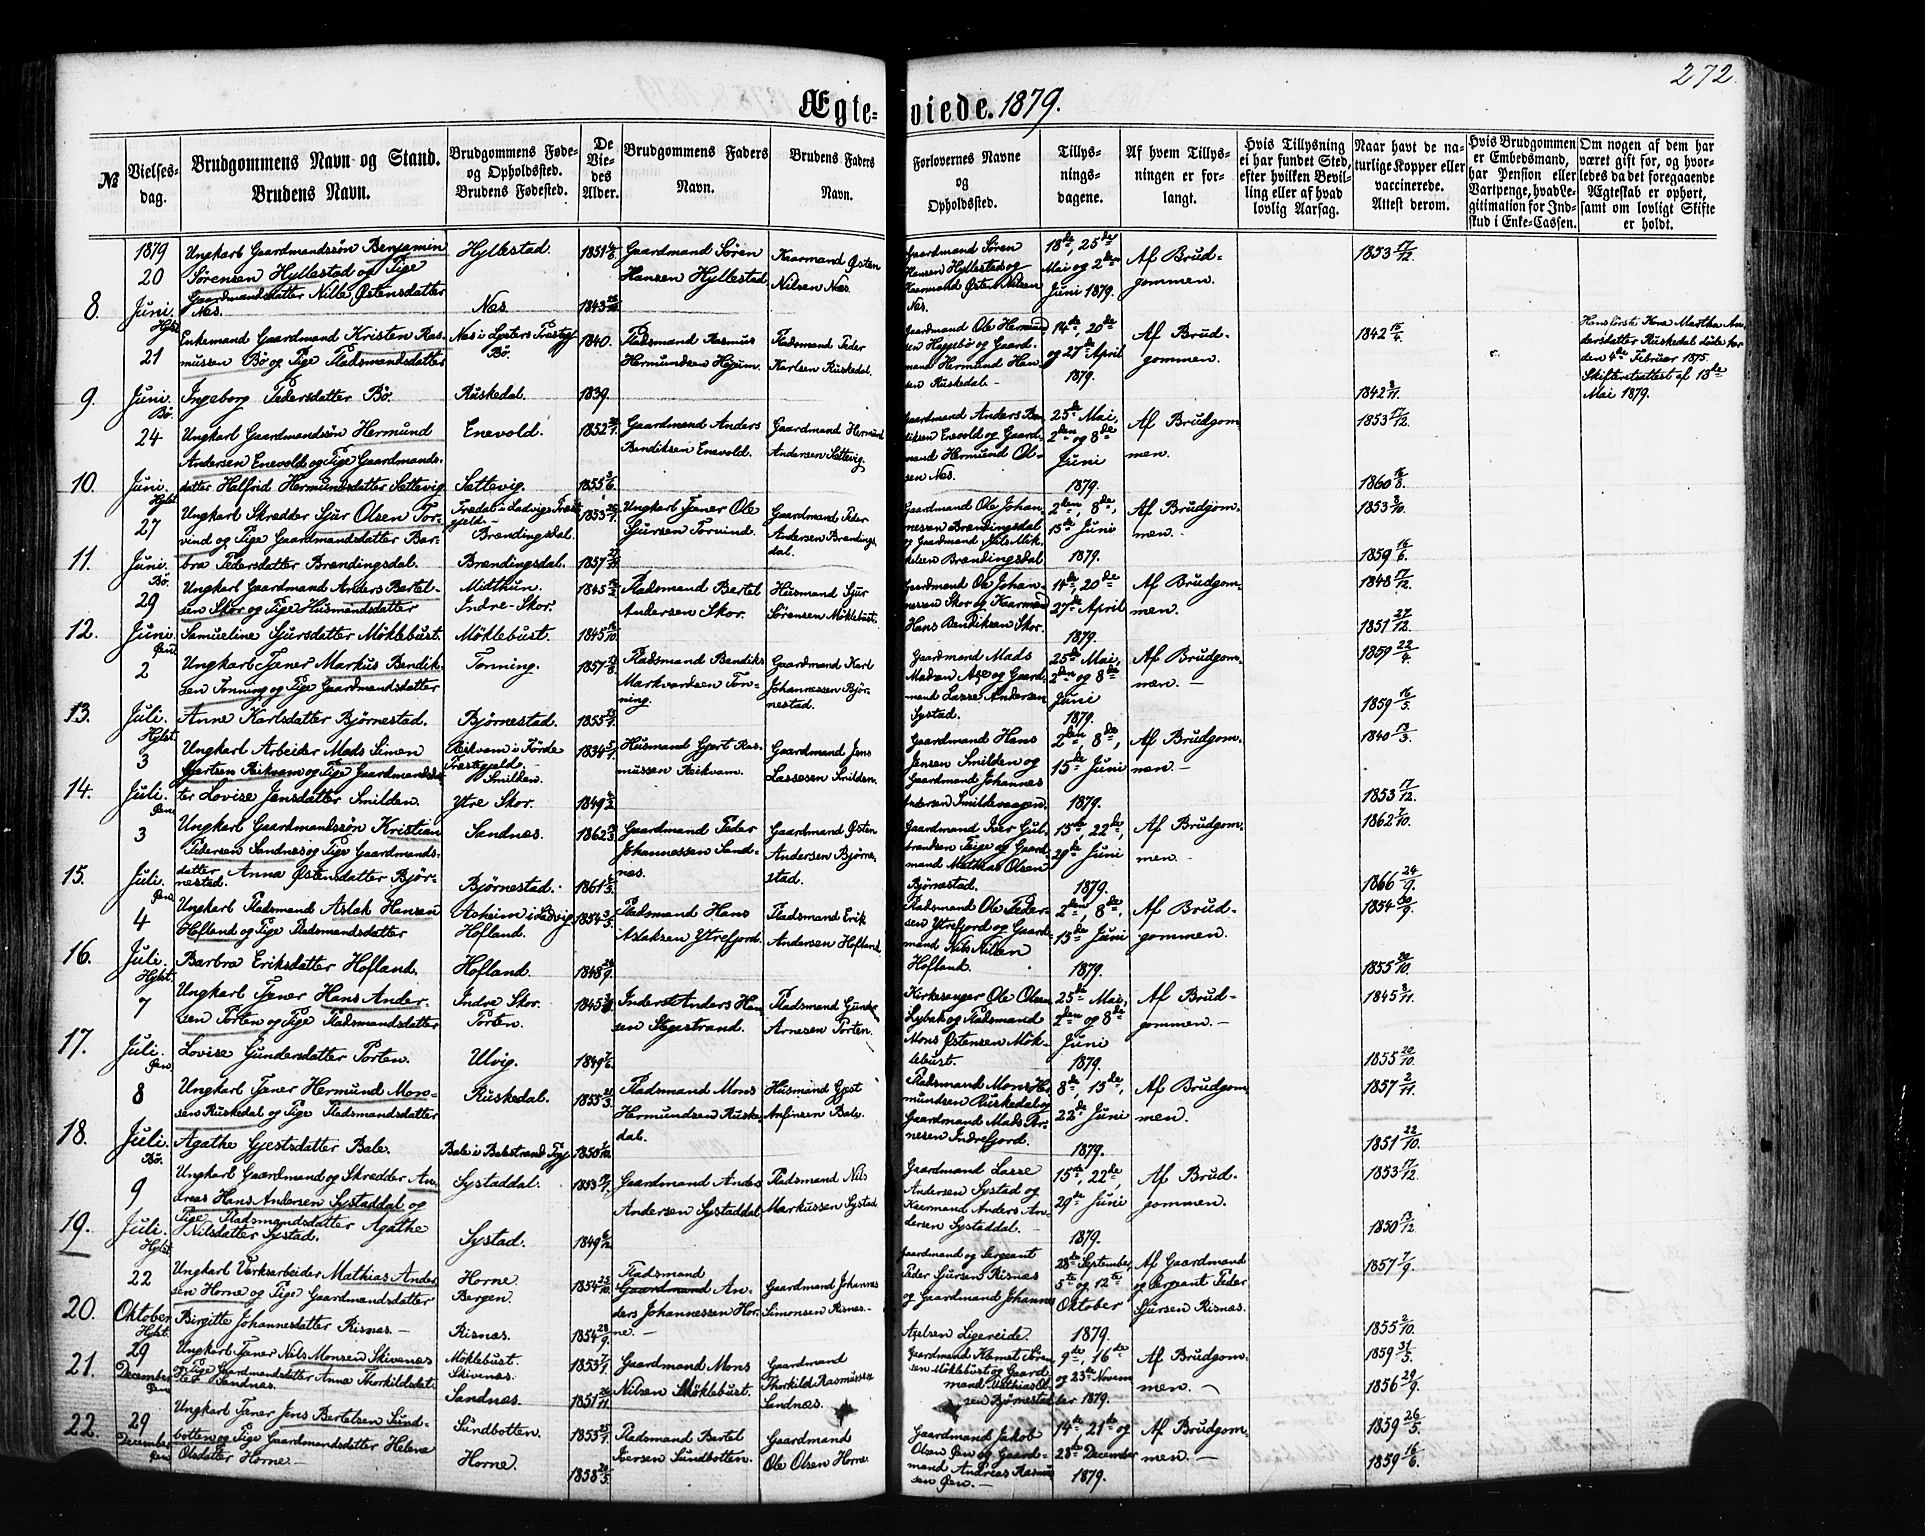 272.
Ægte-viede. 1879.
№
Vielses-
dag.
Brudgommens Navn og Stand.
Brudens Navn.
Brudgommens Føde-
og Opholdssted.
Brudens Fødested.
De
Vie-
des
Alder.
Brudgommens Faders
Navn.
Brudens Faders
Navn.
Forlovernes Navne
og
Opholdssted.
Tillys-
nings-
dagene.
Af hvem Tillys-
ningen er for-
langt.
Hvis Tillysning
ei har fundet Sted,
efter hvilken Bevil-
ling eller af hvad
lovlig Aarsag.
Naar havt de na-
turlige Kopper eller
vaccinerede.
Attest derom.
Hvis Brudgommen
er Embedsmand,
har Pension eller
Vartpenge, hvad Le-
gitimation for Ind-
skud i Enke-Cassen.
Om nogen af dem har
været gift før, og hvor-
ledes da det foregaaende
Ægteskab er ophørt,
samt om lovligt Skifte
er holdt.
8.
1879
20
Juni.
Hylst.
Ungkarl Gaardmandssøn Benjamin
Sørensen Hyllestad og Pige
Gaardmandsdatter Nille Østensdatter
Næs.
Hyllestad.
Næs.
1851
1843
Gaardmand Søren
Hansen Hyllestad
Kaarmand Østen
Nilsen Næs.
Gaardmand Søren
Hansen Hyllestad og
Kaarmand Østen Nilsen
Næs.
18de, 25de
Mai og 2den
Juni 1879.
Af Brud-
gommen.
1853 17/12.
9.
21
Juni.
Bø.
Enkemand Gaardmand Kristen Ras-
mussen Bø og Pige Pladsmandsdatter
Ingeborg Pedersdatter Bø.
Næs i Lysters Præstegj
Bø.
Ruskedal.
1840.
1839.
Pladsmand Rasmus
Hermundsen Højum.
Pladsmand Peder
Karlsen Ruskedal.
Gaardmand Ole Hermund
sen Heggebø og Gaard-
mand Hermund Han
sen Ruskedal. -
14de, 20de
og 27de April
1879.
Af Brud-
gommen.
1842 15/4.
1842 8/11.
Hans første Kone Martha An-
dersdatter Ruskedal døde her
den 4de Februar 1875.
Skifteretsattest af 13de
Mai 1879.
10.
24
Juni.
Hylst.
Ungkarl Gaardmandssøn Hermund
Andersen Enevold og Pige Gaardmands-
datter Halfrid Hermundsdatter Sættevig.
Enevold.
Sættevig.
1852
1855
Gaardmand Anders
Bendiksen Enevold.
Gaardmand Hermund
Andersen Sættevig.
Gaardmand Anders Ben
diksen Enevold og Gaard-
mand Hermund Ol-
sen Næs.
25de Mai,
2den og 8de
Juni
1879.
Af Brudgom
men.
1853 17/12.
1860
11.
27
Juni.
Bø.
Ungkarl Skrædder Sjur Olsen Tor-
vind og Pige Gaardmandsdatter Bar-
bra Pedersdatter Brændingsdal.
Brændingsdal.
Brændingsdal.
1853
1857
Ungkarl Tjener Ole
Sjursen Torvind.
Gaardmand Peder
Andersen Brændings
dal.
Gaardmand Ole Johan-
nessen Brændingsdal
og Gaardmand Nils Mik
kelsen Brændingsdal
2den, 8de,
15de Juni
1879.
Af Brudgom-
men.
1853 8/10.
1859 16/6.
12.
29
Juni.
Øen
Ungkarl Gaardmand Anders Bertel-
sen Skor og Pige Husmandsdatter
Samueline Sjursdatter Møklebust.
Midthun.
Indre-Skor.
Møklebust.
1845
1845
Pladsmand Bertel
Andersen Skor.
Husmand Sjur
Sørensen Møklebust.
Gaardmand Ole Johan-
nessen Skor og Kaarmand
Hans Bendiksen Skor.
14de, 20de
27de April
1879.
Af Brudgom-
men.
1848 17/12.
1851 27/12.
13.
2
Juli.
Hylst.
Ungkarl Tjener Markus Bendik-
sen Tonning og Pige Gaardmandsdatter
Anne Karlsdatter Bjørnestad.
Tonning.
Bjørnestad.
1857
1855
Pladsmand Bendiks
Markvardsen Ton-
ning.
Gaardmand Karl
Johannessen Bjør-
nestad.
Gaardmand Mads
Madsen Aze og Gaard-
mand Lasse Andersen
Systad.
25de Mai,
2den og 8de
Juni
1879.
Af Brudgom-
men. -
1859 22/4.
1859 16/5.
14.
3
Juli.
Øen.
Ungkarl Arbeider Mads Simon
Gjertsen Reikvam og Pige Gaardmandsdat
ter Lovise Jensdatter Smilden.
Reikvam i Førde
Præstegjeld. -
Smilden.
Ytre Skor.
1834
1849
Husmand Gjert Ras-
mussen Reikvam.
Gaardmand Jens
Lassesen Smilden.
Gaardmand Hans
Jensen Smilden og
Gaardmand Johannes
Andersen Smildevaagen.
2den, 8de,
15de Juni
1879.
Af Brudgom-
men. -
1840 13/3.
1853 17/12.
15.
3
Juli.
Øen.
Ungkarl Gaardmandssøn Kristian
Pedersen Sandnæs og Pige Gaardmands-
datter Anna Østensdatter Bjør-
nestad.
Sandnæs.
Bjørnestad.
1862
1861
Gaardmand Peder
Johannessen Sand-
næs.
Gaardmand Østen
Andersen Bjørne-
stad.
Gaardmand Iver Gul-
brandsen Teige og Gaard-
mand Mathias Olsen
Bjørnestad.
15de, 22de,
29de Juni
1879.
Af Brudgom-
men.
1862 7/10.
1866 24/9.
16.
4
Juli.
Hylst.
Ungkarl Pladsmand Aslak Hansen
Hofland og Pige Pladsmandsdatter
Barbra Eriksdatter Hofland.
Aaheim i Ladvig
Hofland.
Hofland.
1854
1848
Pladsmand Hans
Aslaksen Ytrefjord.
Pladsmand Erik
Andersen Hofland.
Pladsmand Ole Peder-
sen Ytrefjord og Gaard-
mand Nils Nilsen
Hofland.
2den, 8de,
15de Juni
1879.
Af Brud-
gommen.
1854 30/9.
1855 20/10.
17.
7
Juli.
Øen.
Ungkarl Tjener Hans Ander-
sen Porten og Pige Pladsmandsdatter
Lovise Gundersdatter Porten.
Indre Skor.
Porten.
Ulvig.
1845
1849
Inderst Anders Han
sen Stegestrand.
Pladsmand Gunder
Arnesen Porten.
Kirkesanger Ole Olsen
Lybæk og Pladsmand
Mons Østensen Møk-
lebust.
25de Mai,
2den og 8de
Juni
1879.
Af Brud-
gommen. -
1845 8/11.
1855 20/10.
18.
8
Juli.
Bø.
Ungkarl Tjener Hermund Mon-
sen Ruskedal og Pige Pladsmandsdatter
Agathe Gjestsdatter Bale.
Ruskedal.
Bale i Balestrand Pgj
1855
1850
Pladsmand Mons
Hermundsen Ruske-
dal.
Husmand Gjest
Anfinsen Bale.
Pladsmand Mons Her
mundsen Ruskedal og
Gaardmand Mads Ar-
nesen Indrefjord.
8de, 15de,
22de Juni
1879.
Af Brudgom
men.
1857 2/11.
1851 22/10.
19.
9
Juli.
Hylst.
Ungkarl Gaardmand og Skrædder An-
dreas Hans Andersen Systaddal og
Pige Pladsmandsdatter Agathe
Nilsdatter Systad.
Systaddal.
Systad.
1853
1849
Gaardmand Anders
Andersen Systaddal
Pladsmand Nils
Markussen Systad
Gaardmand Lasse
Andersen Systad og
Kaarmand Anders An-
dersen Systaddal.
15de, 22de,
29de Juni
1879.
Af Brud-
gommen.
1853 17/12.
1850 13/12.
20.
22
Oktober
Hylst.
Ungkarl Værksarbeider Mathias Ander
sen Horne og Pige Gaardmandsdatter
Birgitte Johannesdatter Risnæs. -
Horne
Bergen.
Risnæs.
1854 25/10.
1854 28/9.
Pladsmand
Gaardmand An-
ders Johannessen Hor-
ne. -
Gaardmand Johannes
Simonsen Risnæs. -
Gaardmand og Sergeant
Peder Sjursen Risnæs
og Gaardmand Johannes
Axelsen Ligereide.
28de September,
5te og 12te
Oktober
1879.
Af Gaardmand
og Sergeant Peder
Sjursen Risnæs.
1857 7/9.
1855 2/10.
21.
29
December
Øen
Ungkarl Tjener Nils Monsen Skivenæs
og Pige Gaardmandsdatter Anna Thorkildsdat-
ter Sandnæs.
Møklebust.
Skivenæs.
Sandnæs.
1853
1851
Gaardmand Mons
Nilsen Møklebust.
Gaardmand
Thorkild Rasmussen
Sandnæs.
Gaardmand Kornet Søren
sen Møklebust og Gaard
mand Mathias Ol-
sen Bjørnestad
9de, 16de
og 23de Novem
ber 1879.
Af Brudgom-
men. -
1859 31/5.
1856 29/9.
22.
29
December
Øen
Ungkarl Tjener Jens Bertelsen Sund-
botten og Pige Gaardmandsdatter Helena
Olsdatter Horne. -
Sundbotten.
Horne.
1853
1858
Pladsmand Bertel
Iversen Sundbotten.
Gaardmand
Ole Olsen Horne.
Gaardmand Jakob
Olsen Øen og Gaard-
mand Andreas Rasmus
sen Øen. -
14de, 21de og
28de December
1879.
Af Brudgom-
men. -
1859 26/5.
1859 16/6.